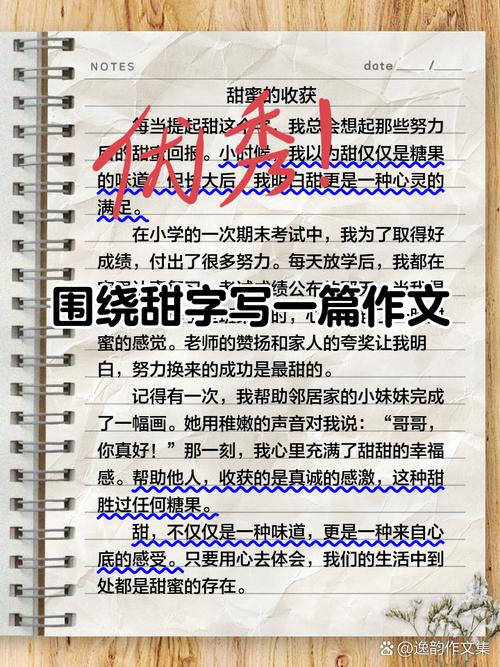 NOTES
date ____ / ____
甜蜜的收获
优秀!
每当提起甜这个，我总会想起那些努力
后的甜蜜回报。小时候，我以为甜仅仅是糖果
的味道，但长大后，我明白甜更是一种心灵的
满足。
在小学的一次期末考试中，我为了取得好
成绩，付出了很多努力。每天放学后，我都在
围绕甜字写一篇作文
时，心
蜜的感觉。老师的赞扬和家人的夸奖让我明
白，努力换来的成功是最甜的。
记得有一次，我帮助邻居家的小妹妹完成
了一幅画。她用稚嫩的声音对我说：“哥哥，
你真好！”那一刻，我心里充满了甜甜的幸福
感。帮助他人，收获的是真诚的感激，这种甜
胜过任何糖果。
甜，不仅仅是一种味道，更是一种来自心
底的感受。只要用心去体会，我们的生活中到
处都是甜蜜的存在。
逸韵作文集